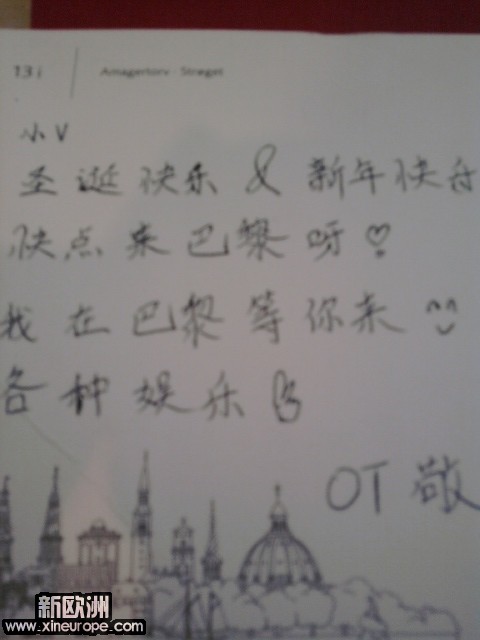 13 i
Amagertorv - Strøget
小V
圣诞快乐 & 新年快乐
快点来巴黎呀♡
我在巴黎等你来
各种娱乐
OT敬
新欧洲
www.xineurope.com